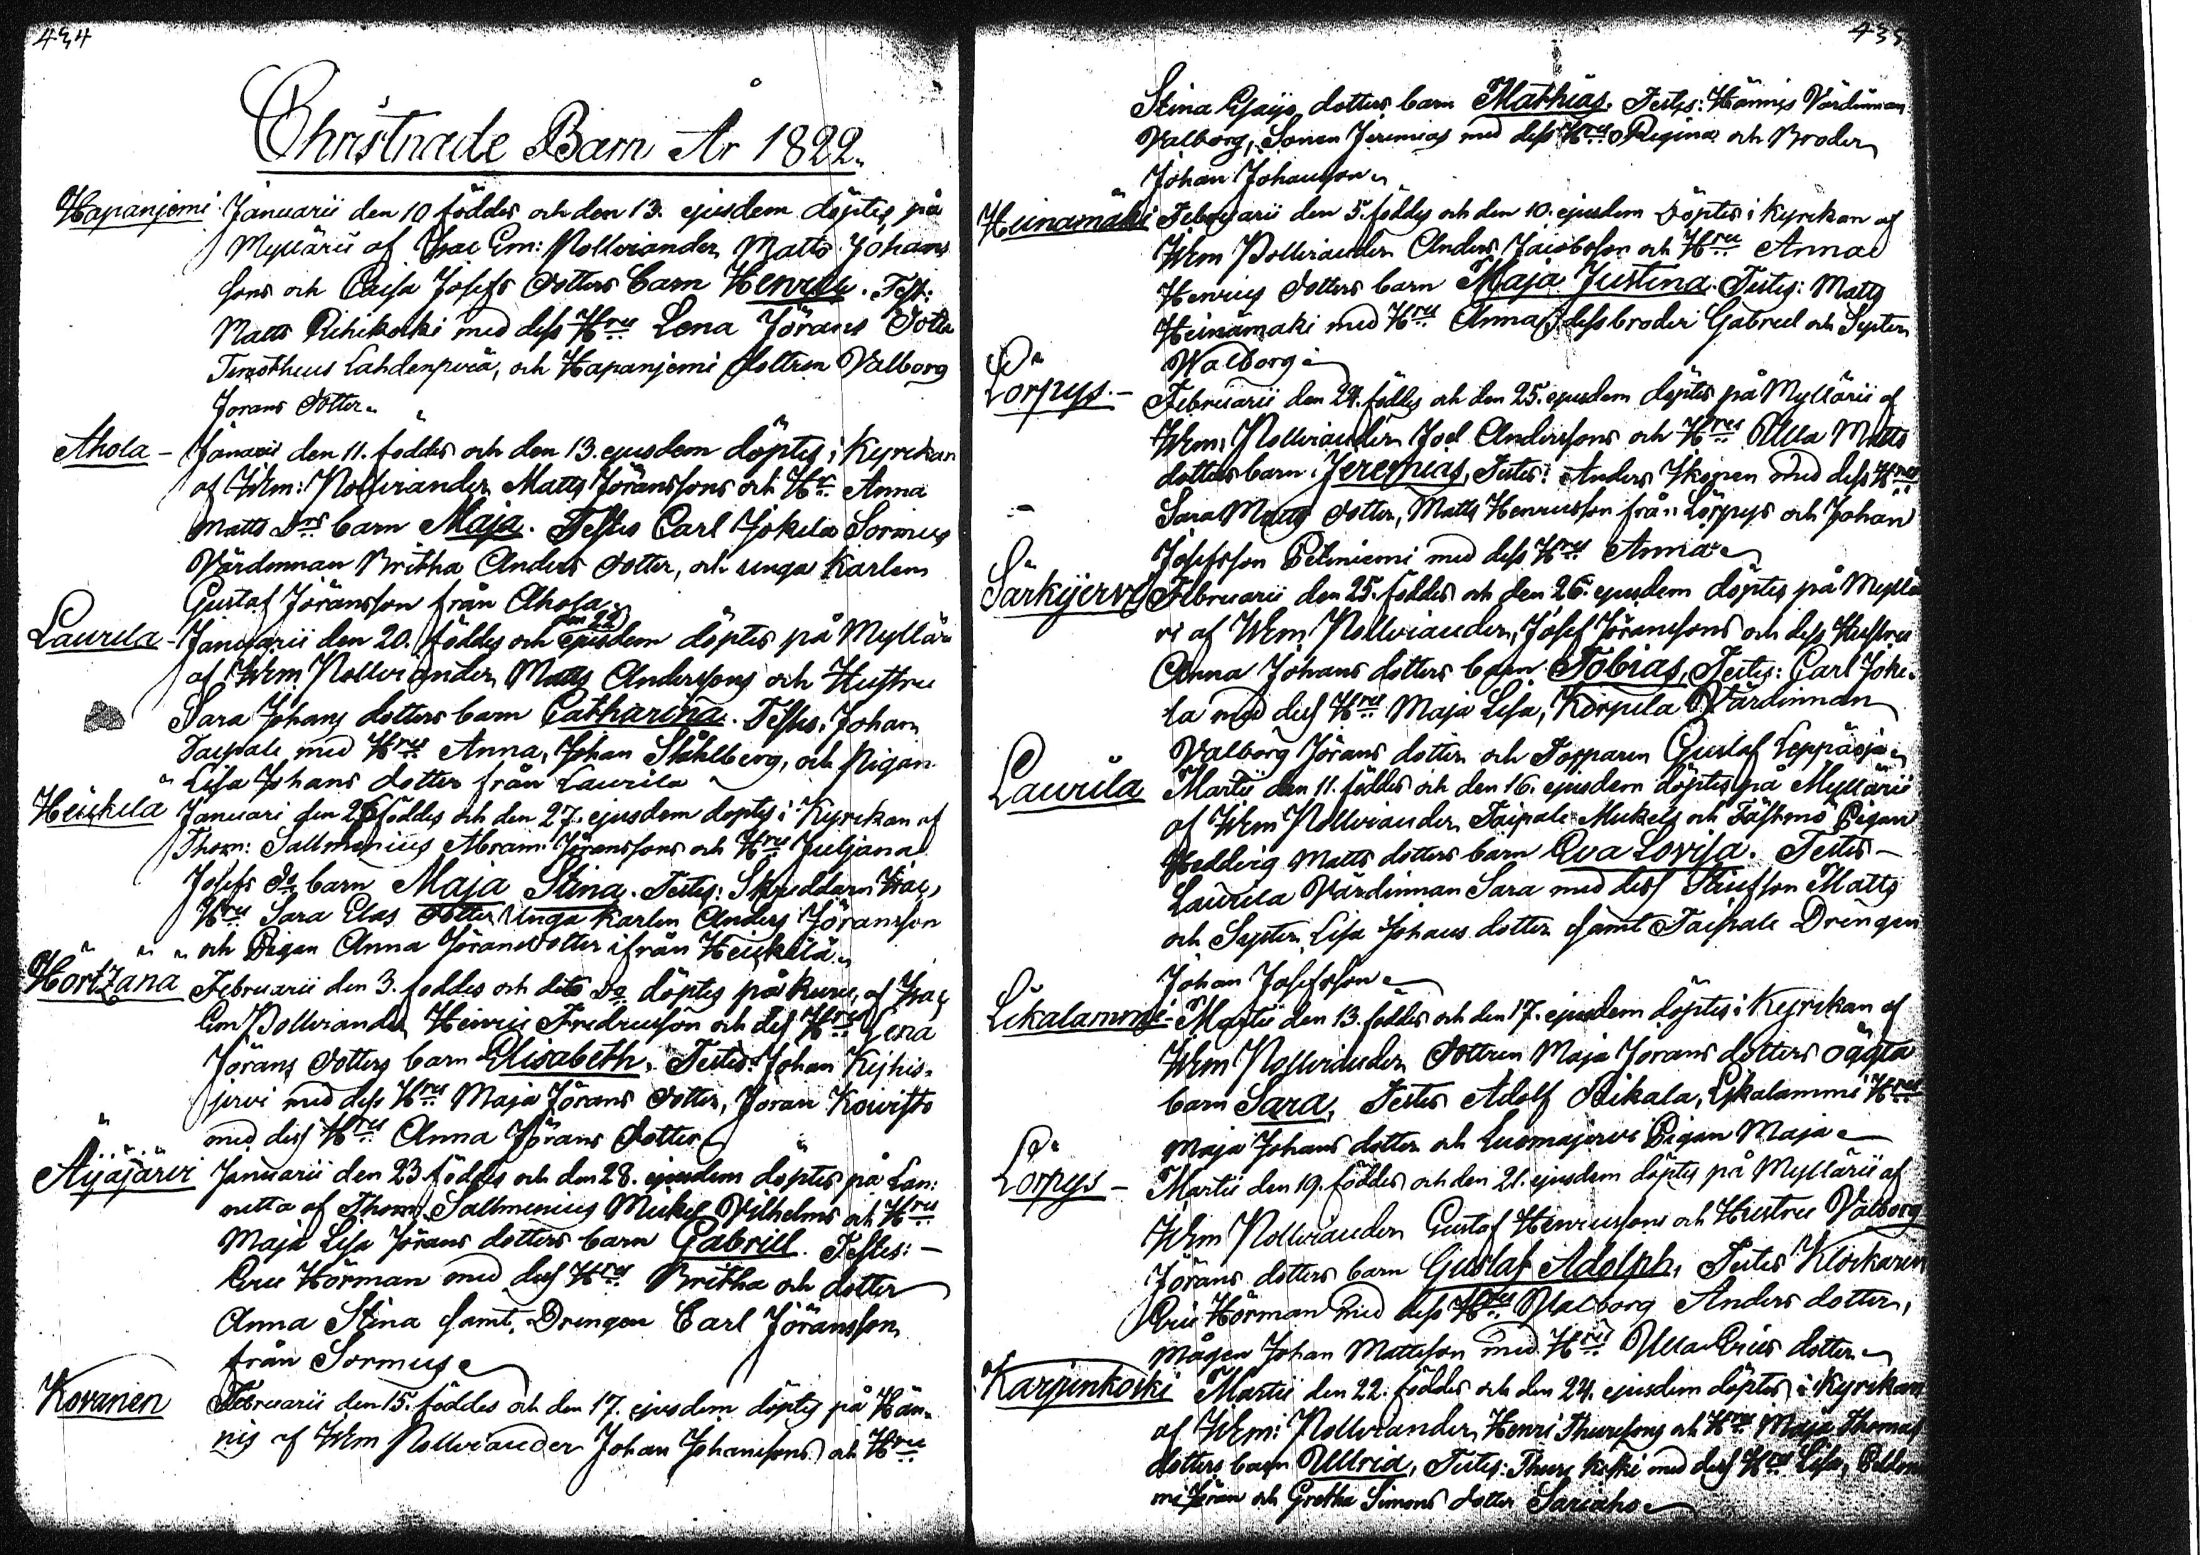 434
Christnade Barn År 1822.
Hapanjemi Januarii den 10 föddes och den 13. ejusdem döptes på
Myllärii af Vac Em: Pollviander Matts Johans
sons och Caisa Josefs dotters barn Henrik. Test:
Matts Rihikoski med dess Hru Lena Jörans dotter
Timotheus Lahdenperä, och Hapanjemi dottren Valborg
Jorans dotter.
Ahola - Januarii den 11. föddes och den 13. ejusdem döptes i Kyrckan
af WEm: Pollviander Matts Jöranssons och H: Anna
Matts Drs barn Maja. Testes Carl Jokela Sormus
Värdinnan Britha Anders dotter, och unga Karlen
Gustaf Jöransson från Ahola.
Laurila - Januarii den 20. föddes och den 22 ejusdem döptes på Myllärii
af WEm Pollviander Matts Anderssons och Hustru
Sara Johans dotters barn Catharina. Testes. Johan
Taipale med Hru Anna, Johan Ståhlberg, och Pigan
Lisa Johans dotter från Laurila
Heickilä Januari den 26 föddes och den 27. ejusdem döptes i Kyrckan af
Thom: Sallmenius Abram Jöranssons och Hru Juljana
Josefs do barn Maja Stina. Testes: Skreddarn
Hru Sara Elas dotter Unga karlen Anders Jöransson
och Pigan Anna Jöransdotter ifrån Heickilä.
Hörtzänä Februarii den 3. föddes och dito do döptes på Kuru, af
Em Pollviander Henric Fredricsson och dess Hru Lena
Jörans dotters barn Elisabeth. Testes: Johan Kejhis-
jervi med dess Hru Maja Jörans dotter, Joran Koivisto
med dess Hru Anna Jörans dotter
Äijäjärvi Januarii den 23. föddes och den 28. ejusdem döptes på Lan:
netta af Thom: Sallmenius Mickel Vilhelms och Hru
Maja Lisa Jörans dotters barn Gabriel. Testes: -
Eric Hörman med dess Hru Britha och dotter
Anna Stina samt, Drengen Carl Jöransson
från Sormus
Kovanen Februarii den 15. föddes och den 17. ejusdem döptes på Hän-
nis af WEm Pollviander Johan Johanssons och Hru
435
Stina dotters barn Mathias. Testes: Hännis Värdinnan
Valborg, Sonen Jeremias med dess Hru Regina och Broder
Johan Johansson
Heinämäki Februarii den 5. föddes och den 10. ejusdem döptes i Kyrckan af
WEm Pollviander Anders Jacobsson och Hru Anna
Henrics dotters barn Maja Justina. Testes: Matts
Heinämäki med Hru Anna, dess broder Gabriel och Syster
Walborg
Lörpys. - Februarii den 24. föddes och den 25. ejusdem döptes på Myllärii af
WEm: Pollviander Joel Anderssons och Hru Ulla Matts
dotters barn Jeremias, Testes: Anders med dess Hru
Sara Matts dotter, Matts Henricsson från Lörpys och Johan
Josefsson Peltniemi med dess Hru Anna
Särkijervi Februarii den 25. föddes och den 26. ejusdem döptes på Myllä
ri af WEm Pollviander, Josef Jöranssons och dess Hustru
Anna Johans dotters barn Tobias, Testes: Carl Joke-
la med dess Hru Maja Lisa, Korpula Värdinnan
Valborg Jörans dotter och Torparen Gustaf Leppäoja
Laurila Martii den 11. föddes och den 16. ejusdem döptes på Myllärii
af WEm Pollviander Taipale Mickels och Fästmö Pigan
Heddvig Matts dotters barn Eva Lovisa. Testes -
Laurila Värdinnan Sara med dess Stiufson Matts
och Syster, Lisa Johans dotter samt Taipale Drengen
Johan Josefsson
Likalammi - Martii den 13. föddes och den 17. ejusdem döptes i Kyrckan af
WEm Pollviander dottren Maja Jorans dotters oägta
barn Sara, Testes Adolf Likalammi Hru
Maja Johans dotter och Luomajervi Pigan Maja
Lörpys - Martii den 19. föddes och den 21. ejusdem döptes på Myllärii af
WEm Pollviander Gustaf Henricssons och Hustru Valborg
Jörans dotters barn Gustaf Adolph, Testes Klockaren
Eric Hörman med dess Hru Valborg Anders dotter,
mågen Johan Mattsson med Hru Ulla Erics dotter
Karjinkoski Martii den 22. föddes och den 24. ejusdem döptes i Kyrckan
af WEm: Pollviander, Henri Thuressons och Hru Maja Thomas
dotters barn Ullrica, Testes: Thure Koski med dess Hru Lisa,
Jöran och Gretha Simons dotter Sariaho